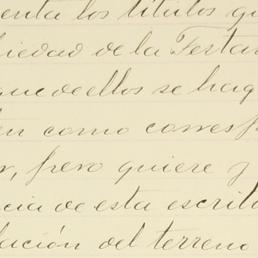 enta los títulos qu
iedad de la Testa
que de ellos se hag
en como corresp
r, pero quiere y
cia de esta escrit
lación del terreno